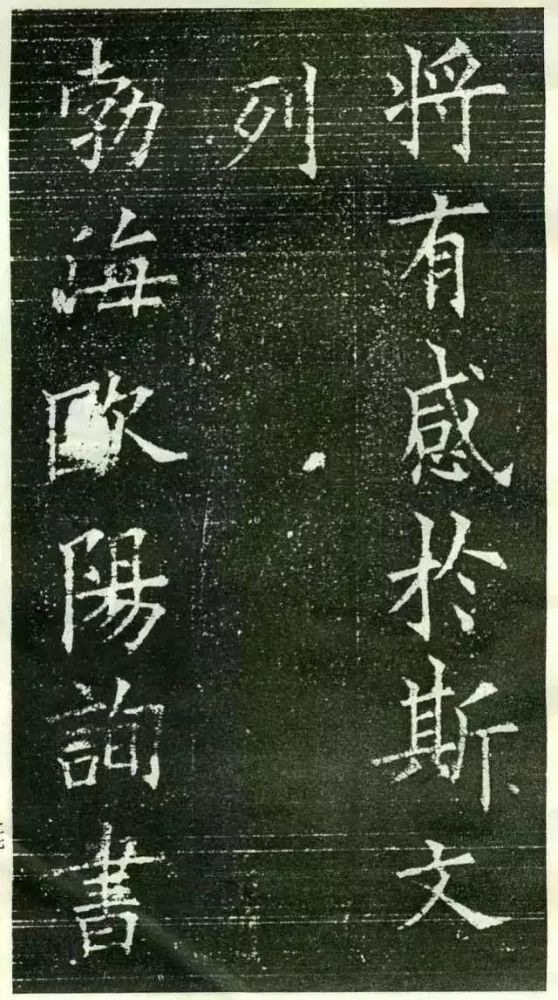 將有感於斯文
列
勃海歐陽詢書